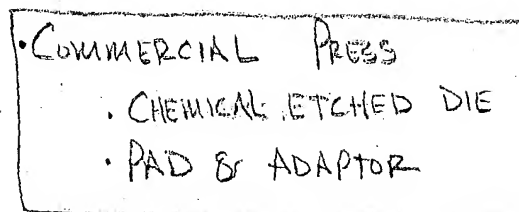 • COMMERCIAL PRESS
• CHEMICAL ETCHED DIE
• PAD & ADAPTOR